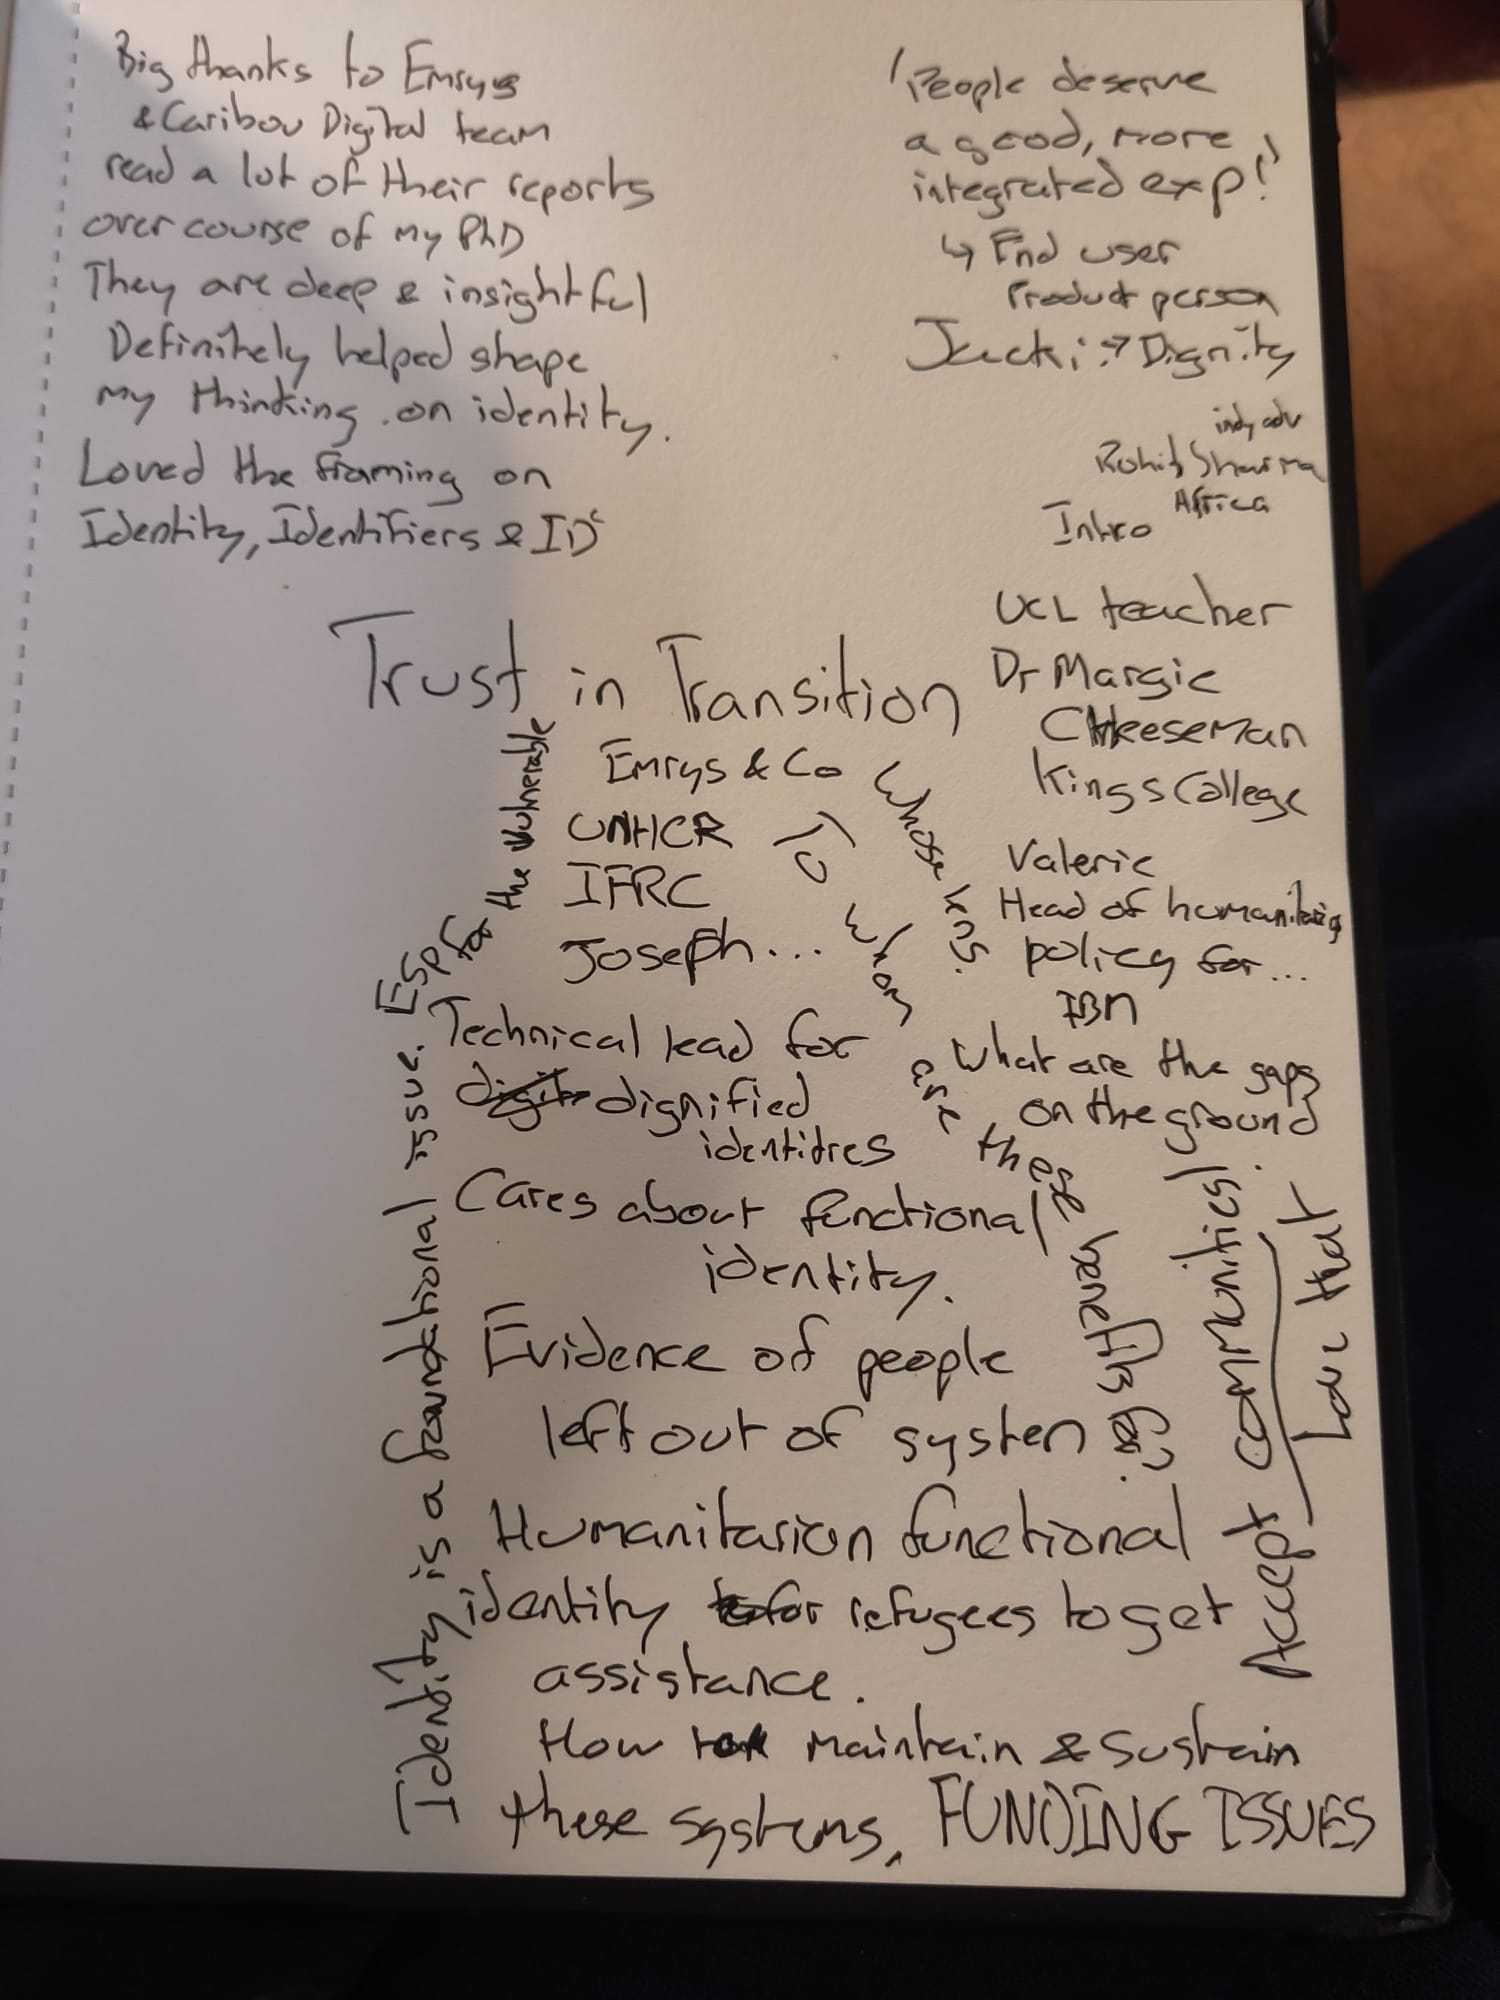 Big thanks to Emrys
& Caribou Digital team
read a lot of their reports
over course of my PhD
They are deep & insightful
Definitely helped shape
my thinking on identity.
Loved the framing on
Identity, Identifiers & IDs
'People deserve
a good, more
integrated exp!'
↳ End user
Product person
Jacki → Dignity
indy adv
Rohit Sharma
Africa
Intro
UCL teacher
Dr Margie
Cheeseman
Kings College
Valerie
Head of humanitarian
policy for...
IBM
What are the gaps
on the ground
Trust in Transition
Emrys & Co
UNHCR
IFRC
Joseph...
Technical lead for
dignified
identities
Cares about functional
identity.
Evidence of people
left out of system
Humanitarian functional
identity for refugees to get
assistance.
How maintain & sustain
these systems, FUNDING ISSUES
Identity is a foundational issue. Esp for the vulnerable
To whom are these benefits
Whose lens.
Accept communities!
Love that